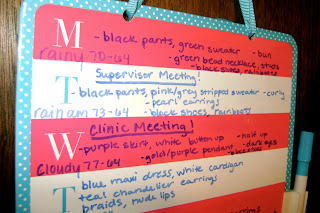 M
-black pants, green sweater -bun
-green bead necklace, studs
rainy 70-64 -black shoes, rainboots
T
Supervisor Meeting!
-black pants, pink/grey stripped sweater -curly
-pearl earrings
rain am 73-64 -black shoes, rainboots
W
Clinic Meeting!
-purple skirt, white button up -half up
-gold/purple pendant -dark eyes
Cloudy 77-64
T
blue maxi dress, white cardigan
teal chandelier earrings
braids, nude lips